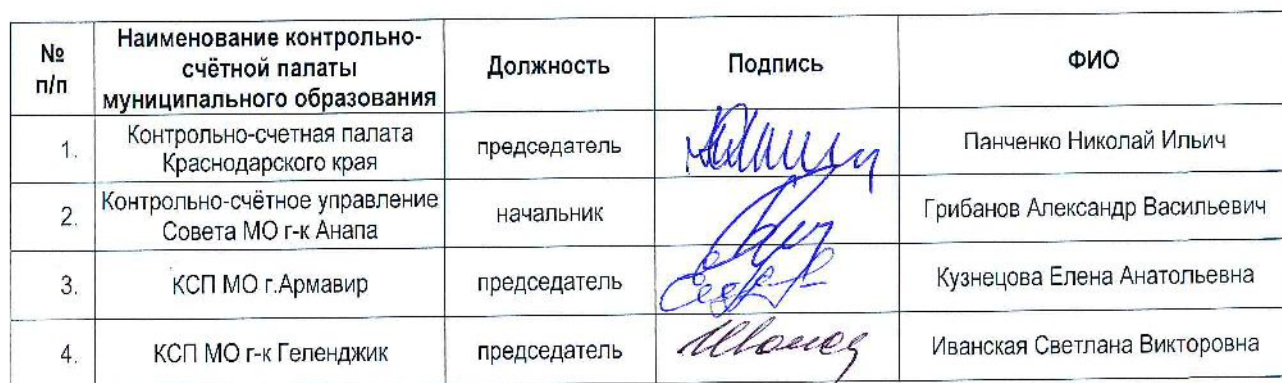 № п/п Наименование контрольно-счётной палаты муниципального образования Должность Подпись ФИО
1. Контрольно-счетная палата Краснодарского края председатель Панченко Николай Ильич
2. Контрольно-счётное управление Совета МО г-к Анапа начальник Грибанов Александр Васильевич
3. КСП МО г.Армавир председатель Кузнецова Елена Анатольевна
4. КСП МО г-к Геленджик председатель Иванская Светлана Викторовна